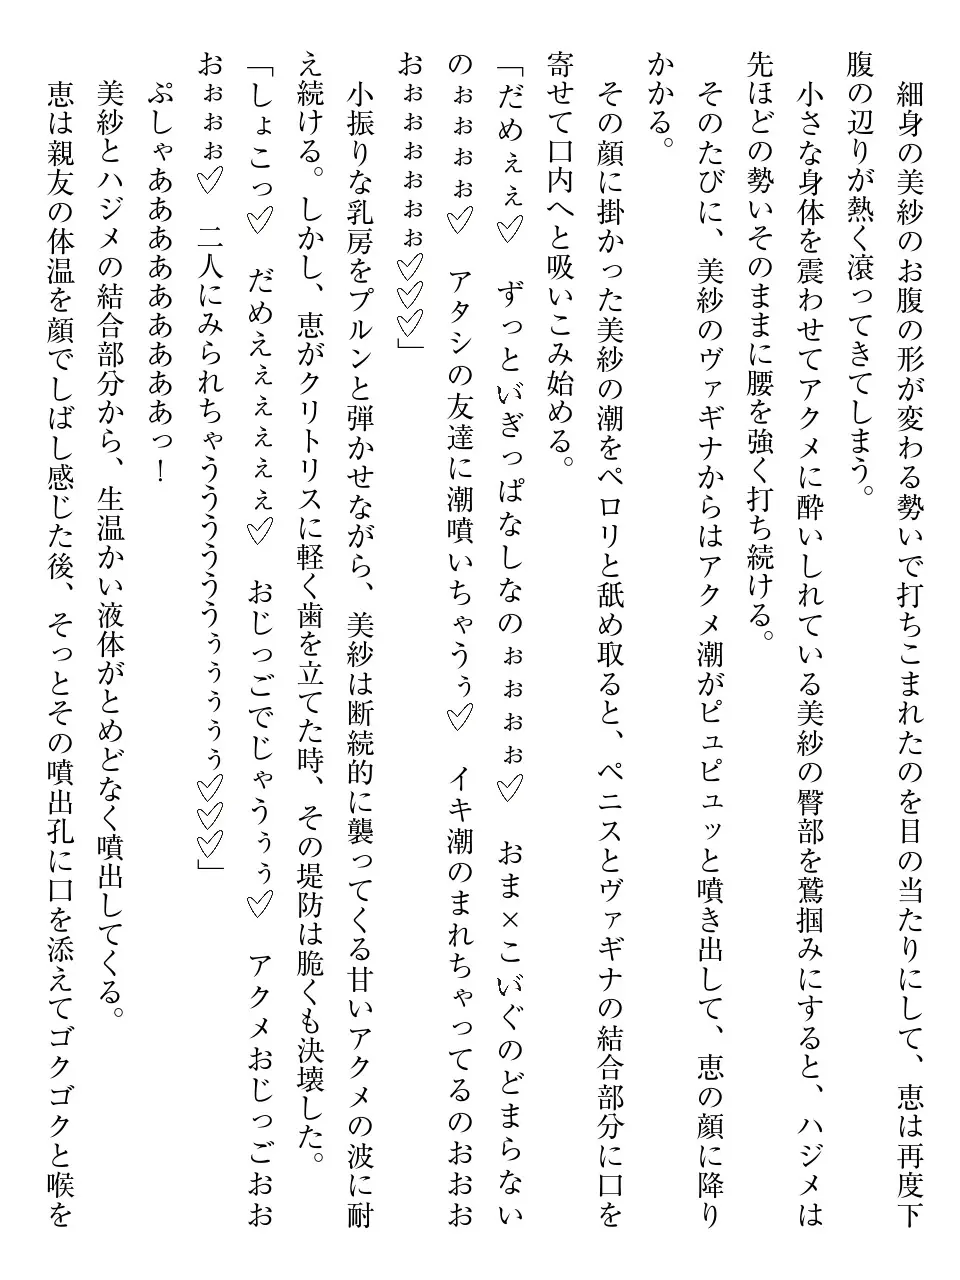 細身の美紗のお腹の形が変わる勢いで打ちこまれたのを目の当たりにして、恵は再度下
腹の辺りが熱く滾ってきてしまう。
小さな身体を震わせてアクメに酔いしれている美紗の臀部を鷲掴みにすると、ハジメは
先ほどの勢いそのままに腰を強く打ち続ける。
そのたびに、美紗のヴァギナからはアクメ潮がピュピュッと噴き出して、恵の顔に降り
かかる。
その顔に掛かった美紗の潮をペロリと舐め取ると、ペニスとヴァギナの結合部分に口を
寄せて口内へと吸いこみ始める。
「だめぇぇ♡　ずっといぎっぱなしなのぉぉぉぉ♡　おま×こいぐのどまらない
のぉぉぉぉ♡　アタシの友達に潮噴いちゃうぅ♡　イキ潮のまれちゃってるのおおお
おぉぉぉぉぉぉ♡♡♡」
小振りな乳房をプルンと弾かせながら、美紗は断続的に襲ってくる甘いアクメの波に耐
え続ける。しかし、恵がクリトリスに軽く歯を立てた時、その堤防は脆くも決壊した。
「しょこっ♡　だめえぇぇぇぇぇ♡　おじっごでじゃうぅぅ♡　アクメおじっごおお
おぉぉぉ♡　二人にみられちゃうううううううぅぅぅぅぅ♡♡♡」
ぷしゃああああああああああっ！
美紗とハジメの結合部分から、生温かい液体がとめどなく噴出してくる。
恵は親友の体温を顔でしばし感じた後、そっとその噴出孔に口を添えてゴクゴクと喉を